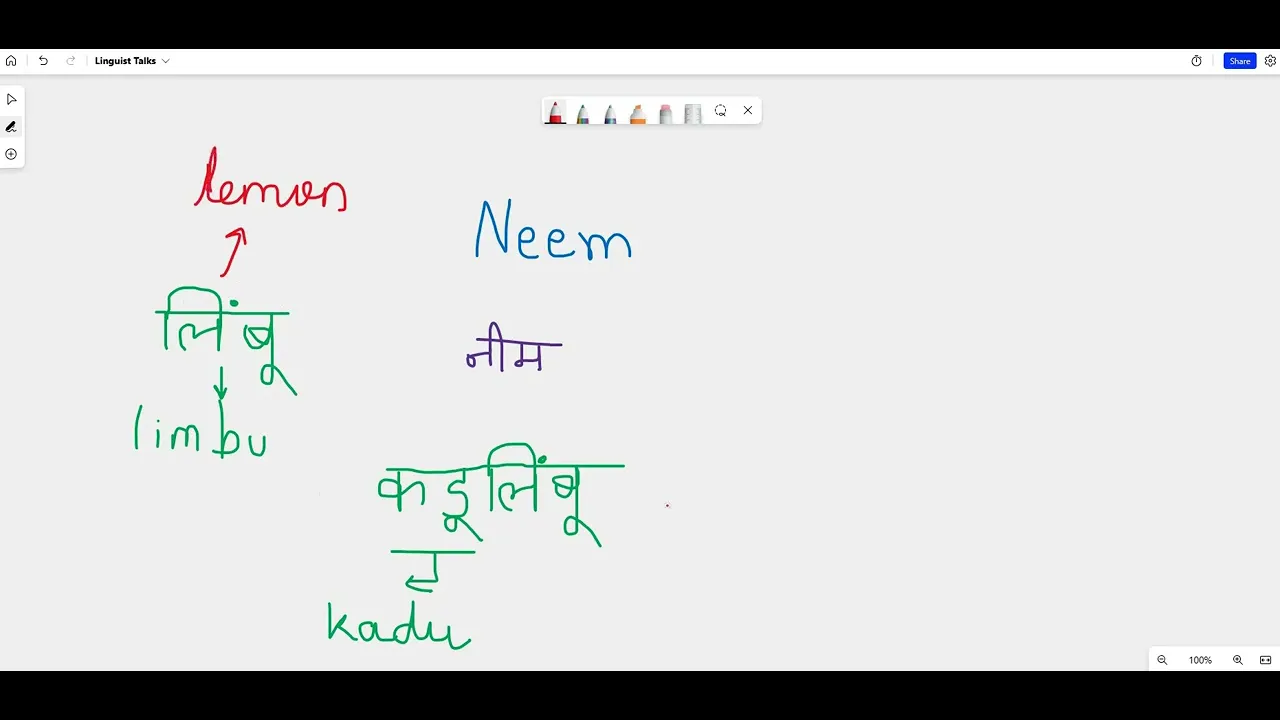 Linguist Talks
Share
lemon
Neem
लिंबू
नीम
limbu
कडूलिंबू
kadu
100%